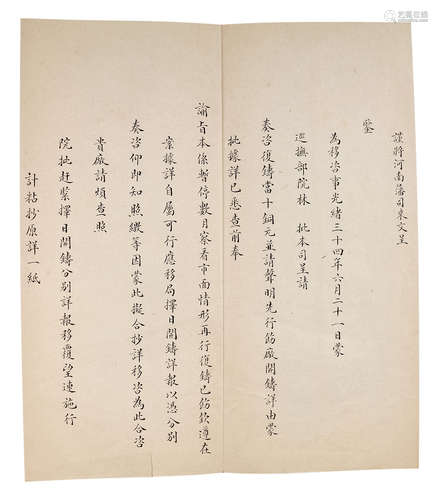 謹將河南藩司來文呈
鑒
為移咨事光緒三十四年六月二十一日蒙
巡撫部院林 批本司呈請
奏咨復鑄當十銅元並請聲明先行飭廠開鑄詳由蒙
批據詳已悉查前奉
諭旨本係暫停數月察看市面情形再行復鑄已飭欽遵在
案據詳自屬可行應移局擇日開鑄詳報以憑分別
奏咨仰即知照繳等因蒙此擬合抄詳移咨為此合咨
貴廠請煩查照
院批趕緊擇日開鑄分別詳報移覆望速施行
計粘抄原詳一紙